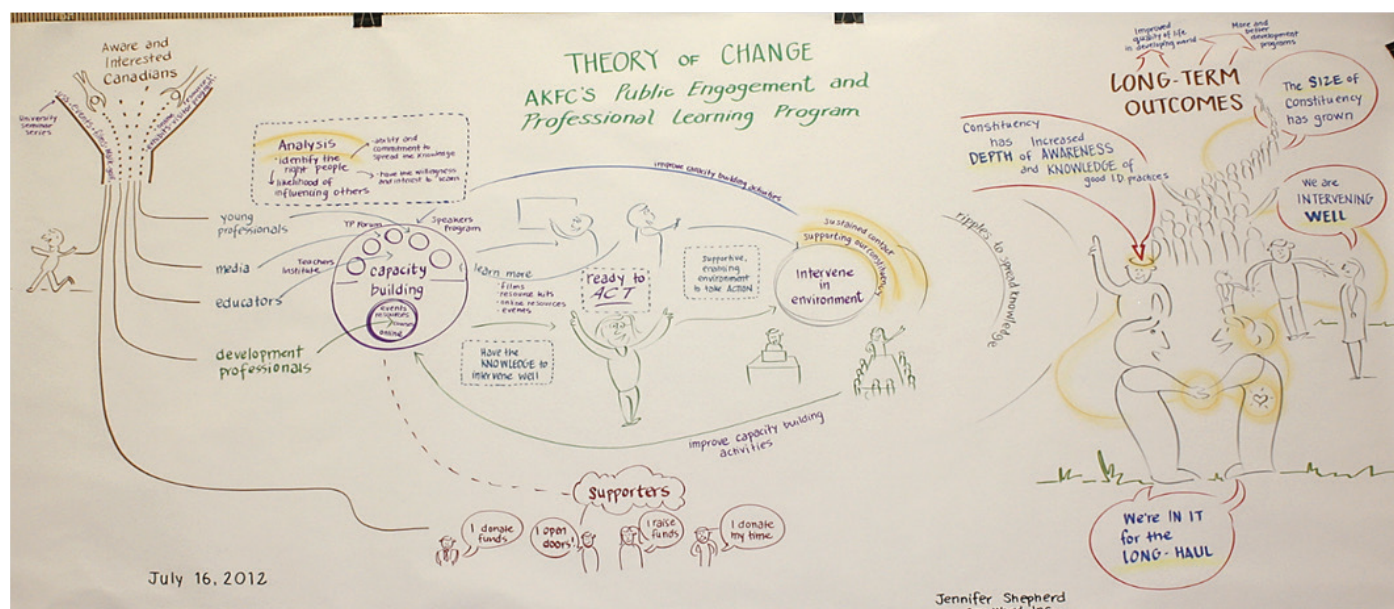 THEORY OF CHANGE
AKFC'S Public Engagement and
Professional Learning Program
Aware and
Interested
Canadians
University
seminar
series
Analysis
• identify the
right people
likelihood of
influencing others
ability and
commitment to
spread the knowledge
young
professionals
media
educators
development
professionals
YP Forum
Speakers
Program
Teachers
Institute
capacity
building
events
resources
online
learn more
• films
• resource kits
• online resources
• events
Have the
KNOWLEDGE to
intervene well
ready to
ACT
improve capacity building activities
Supportive,
enabling
environment
to take ACTION
Intervene
in
environment
sustained contact
supporting our constituency
improve capacity building
activities
ripples to spread knowledge
Supporters
I donate
funds
I open
doors!
I raise
funds
I donate
my time
Improved
quality of life
in developing world
More and
better
development
programs
LONG-TERM
OUTCOMES
The SIZE of
Constituency
has grown
Constituency
has increased
DEPTH of AWARENESS
and KNOWLEDGE of
good I.D. practices
We are
INTERVENING
WELL
We're IN IT
for the
LONG-HAUL
July 16, 2012
Jennifer Shepherd